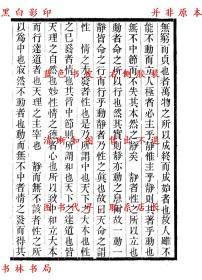 黑白影印 並非原本
無窮而貞也者萬物之所以成終而成始者也故人雖不
能不動而立人極者必主乎靜惟主乎靜則其著乎動也
無不中節而不失其本然之靜矣 靜者性之所以立也
動者命之所以行也然其實則靜亦動之息爾故一動一
靜皆命之行而行乎動靜者乃性之真也故曰天命之謂
性 情之未發者性也是乃所謂中也天下之大本也性
之已發者情也其皆中節則所謂和也天下之達道也皆
天理之自然也妙性情之德者心也所以致中和立大本
而行達道者也天理之主宰也 靜而無不該者性之所
以為中也寂然不動者也動而無不中者情之發而得其
書林書局